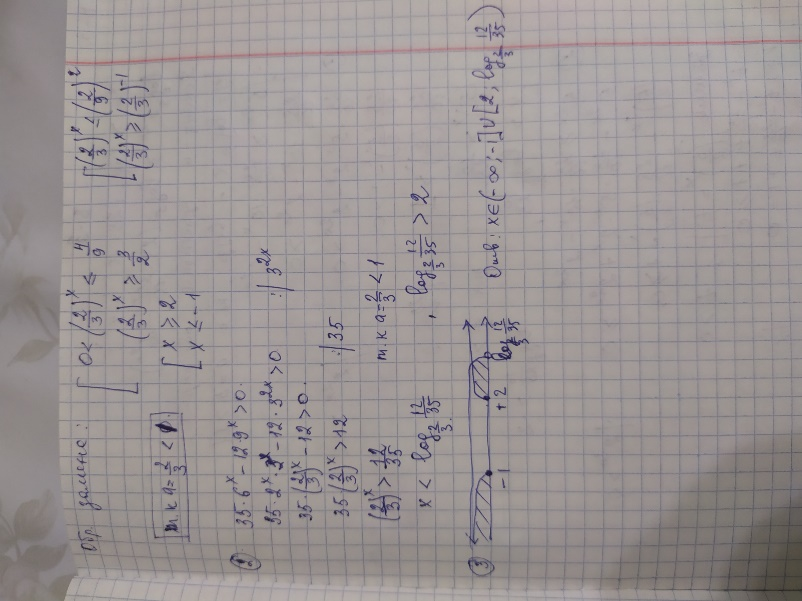 Обр. замена:
[ 0 < (2/3)^x ≤ 4/9
(2/3)^x ≥ 3/2
[ (2/3)^x ≤ (2/9)^2
(2/3)^x ≥ (2/3)^-1
т.к a = 2/3 < 1.
[ x ≥ 2
x ≤ -1
② 35·6^x - 12·9^x > 0.
35·2^x·3^x - 12·3^2x > 0 :| 3^2x
35·(2/3)^x - 12 > 0.
35·(2/3)^x > 12 :| 35
(2/3)^x > 12/35 т.к a = 2/3 < 1
x < log_2/3 12/35 , log_2/3 12/35 > 2
③ -1 + 2 log_2/3 12/35
Отв: x∈(-∞;-1]∪[2, log_2/3 12/35)